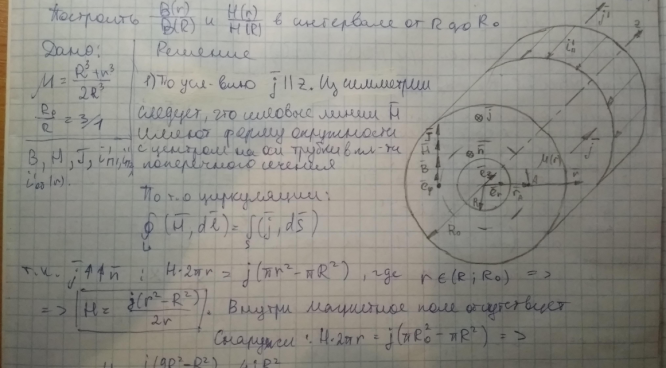 Построить B(r)/B(R) и H(r)/H(R) в интервале от R до R₀
Дано:
μ = (R³ + r³)/2R³
R₀/R = 3/1
B, H, J, i'пл,
i'об(r).
Решение
1) По усл-вию j̄ || z. Из симметрии
следует, что силовые линии H̄
имеют форму окружности
с центром на оси трубки в пл-ти
поперечного сечения
По т. о циркуляции:
∮ (H̄, dl̄) = ∫ (j̄, dS̄)
L S
т.к. j̄ ↑↑ n̄ : H·2πr = j(πr² - πR²), где r ∈ (R; R₀) =>
=> H = j(r² - R²)/2r . Внутри магнитное поле отсутствует
Снаружи: H·2πr = j(πR₀² - πR²) =>
j(9R²-R²) 4jR²
j'
i'об
z
j̄
n̄
J̄
H̄
B̄
μ(r)
A
r
R₀